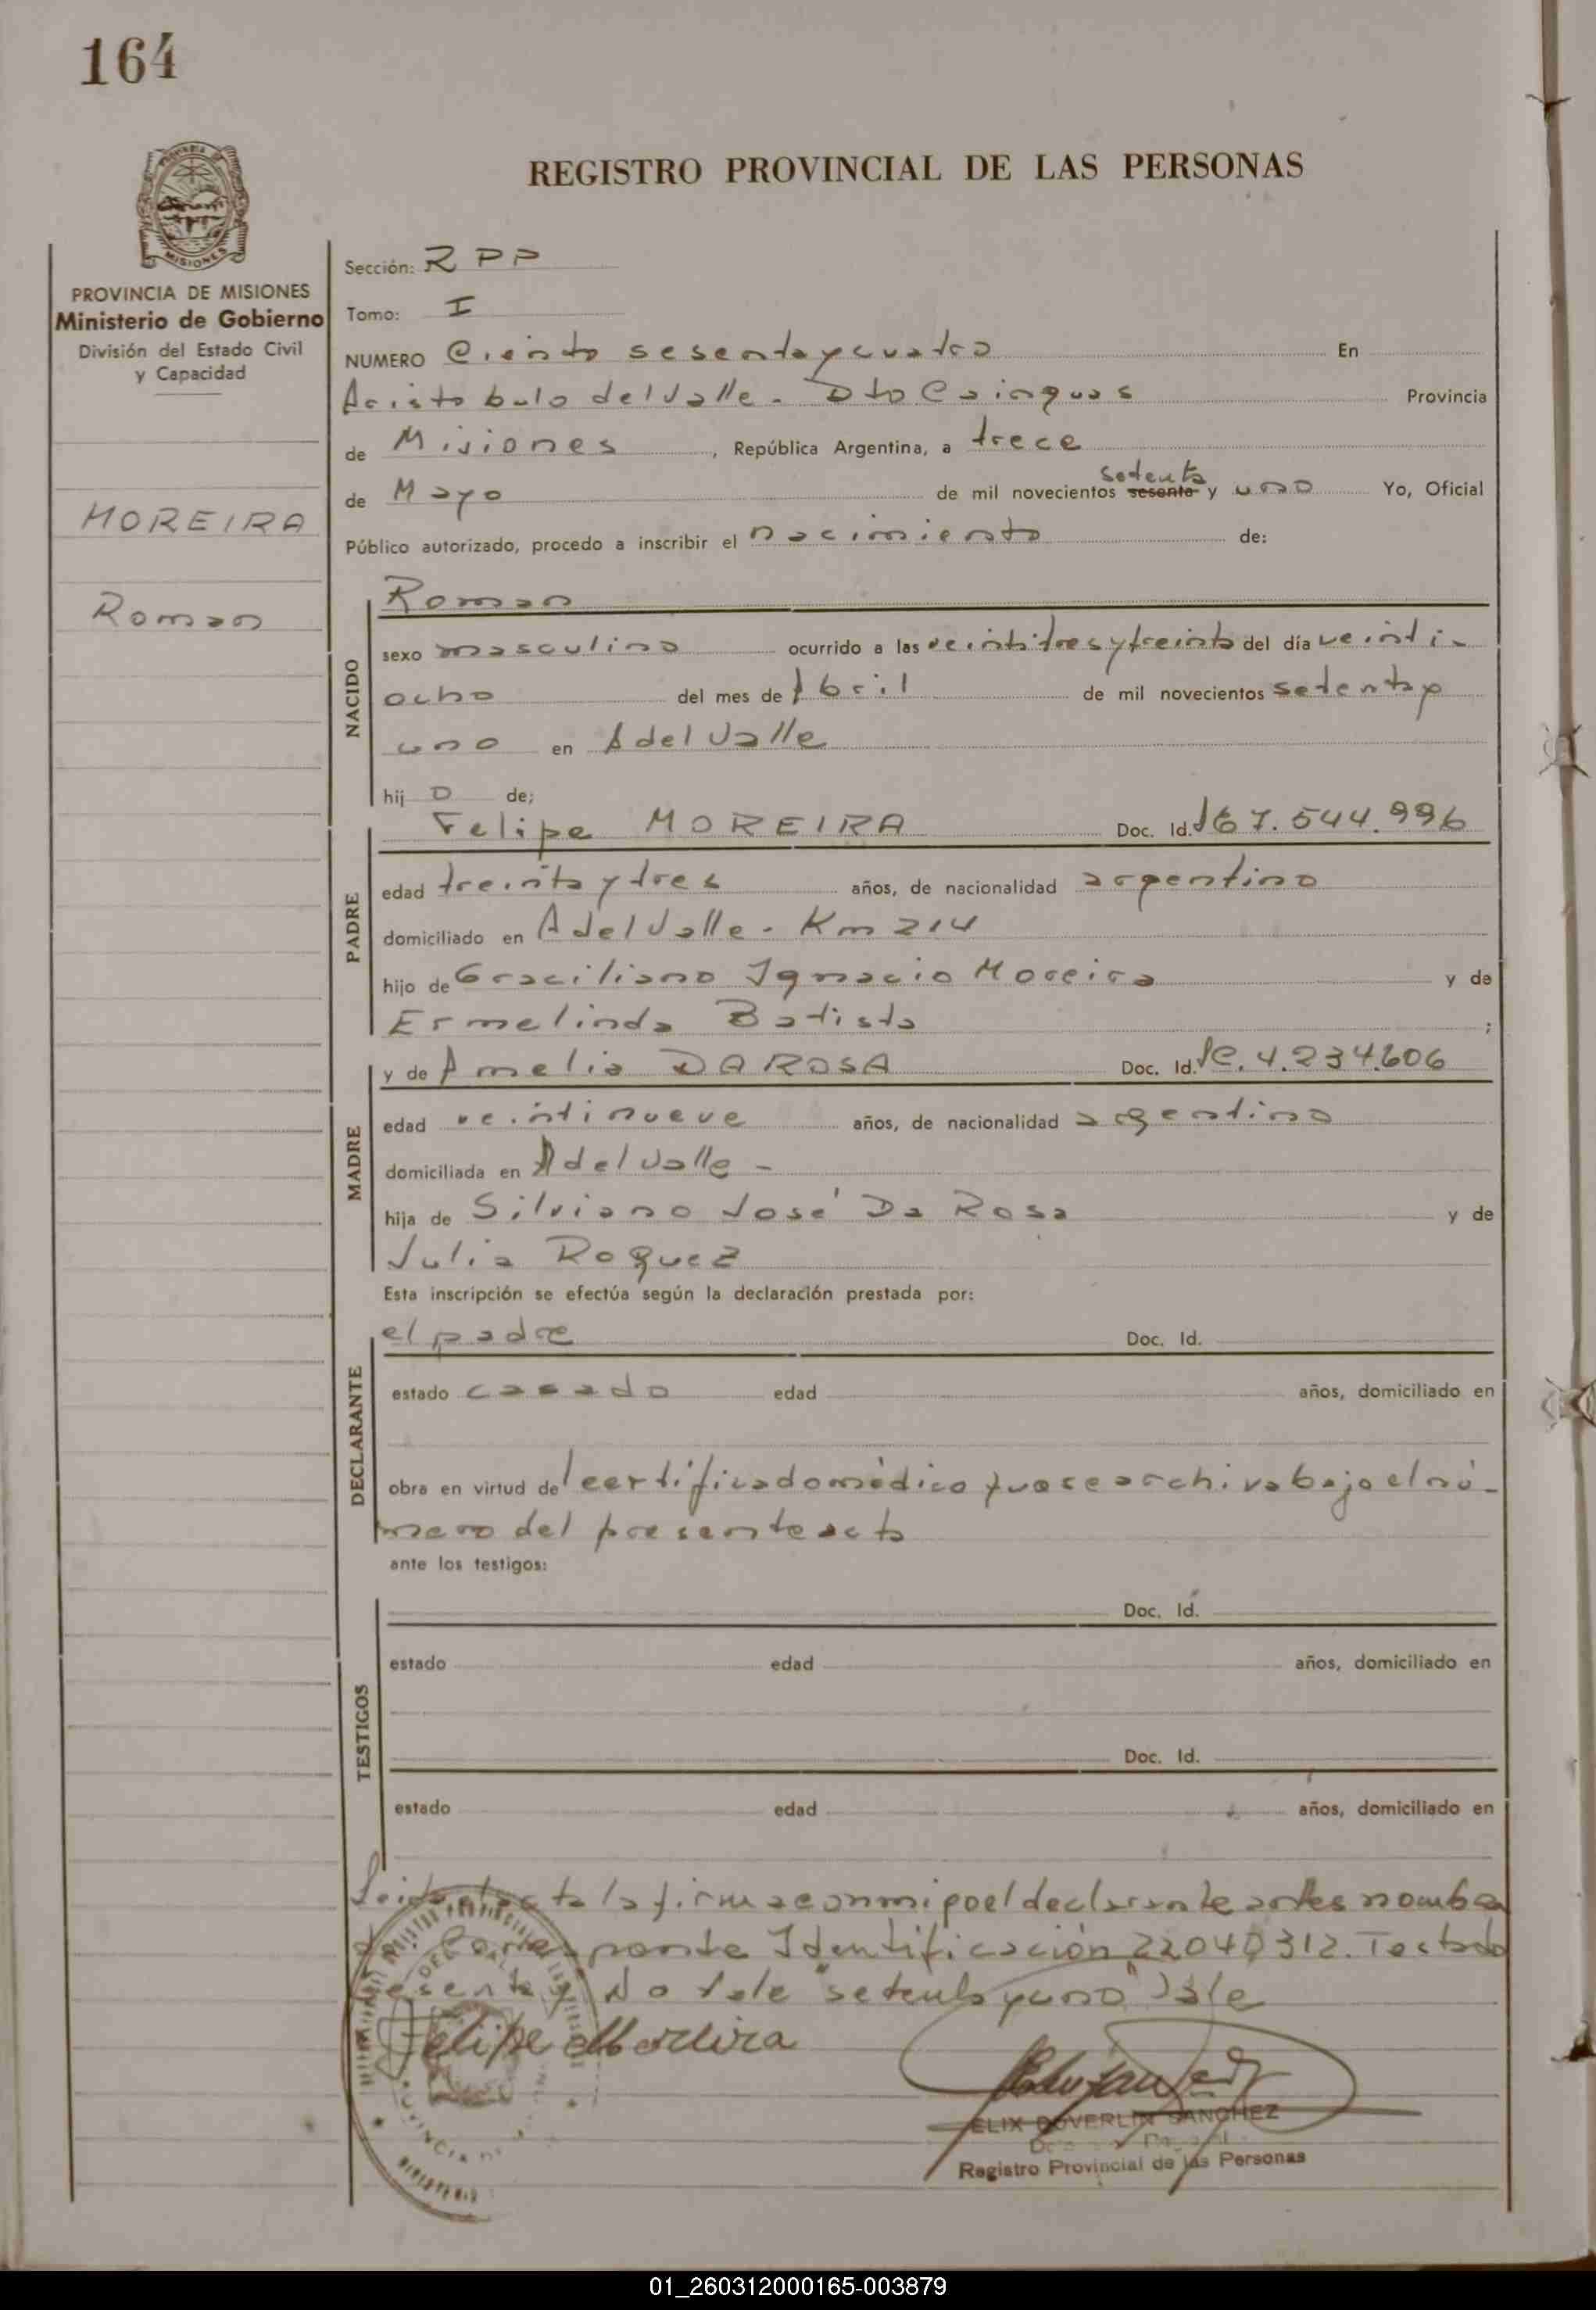 164
REGISTRO PROVINCIAL DE LAS PERSONAS
MISIONES
PROVINCIA DE MISIONES
Ministerio de Gobierno
División del Estado Civil
y Capacidad
MOREIRA
Roman
Sección: R P P
Tomo: I
NUMERO Ciento sesenta y cuatro En
Aristobulo del Valle - Dto Cainguas Provincia
de Misiones, República Argentina, a trece
setenta
de Mayo de mil novecientos sesenta y uno Yo, Oficial
Público autorizado, procedo a inscribir el nacimiento de:
NACIDO
Roman
sexo masculino ocurrido a las veintitres y treinta del día veinti-
ocho del mes de Abril de mil novecientos setenta y
uno en A del Valle
hij o de;
PADRE
Felipe MOREIRA Doc. Id. 7.544.996
edad treinta y tres años, de nacionalidad argentino
domiciliado en A del Valle - Km 214
hijo de Graciliano Ignacio Moreira y de
Ermelinda Batista ;
MADRE
y de Amelia DA ROSA Doc. Id. 4.234.606
edad veintinueve años, de nacionalidad argentina
domiciliada en A del Valle -
hija de Silviano José Da Rosa y de
Julia Roquez
Esta inscripción se efectúa según la declaración prestada por:
DECLARANTE
el padre Doc. Id.
estado casado edad años, domiciliado en
obra en virtud del certificado médico que se archiva bajo el nú-
mero del presente acta
ante los testigos:
TESTIGOS
Doc. Id.
estado edad años, domiciliado en
Doc. Id.
estado edad años, domiciliado en
Leida el acta la firma conmigo el declarante antes nombra
do. Identificación 22040312. Testado
sesenta y No Vale "setenta y uno" Vale
Felipe Moreira
ELIX DOVERLIN SANCHEZ
Registro Provincial de las Personas
01_260312000165-003879